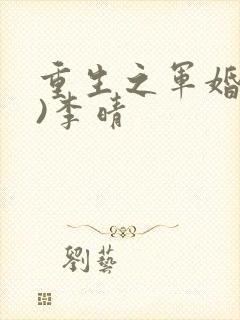 重生之军婚
)李晴
劉藝